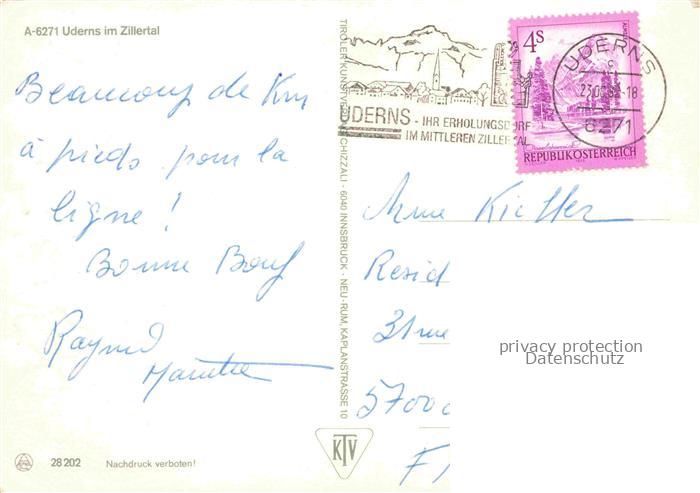 A-6271 Uderns im Zillertal
Beaucoup de Km
à pieds pour la
ligne !
Bonne Bouf
Raymond
28 202
Nachdruck verboten!
TIROLER KUNSTVERLAG CHIZZALI - 6040 INNSBRUCK - NEU-RUM, KAPLANSTRASSE 10
KTV
UDERNS - IHR ERHOLUNGSDORF
IM MITTLEREN ZILLERTAL
4S
REPUBLIK ÖSTERREICH
UDERNS
6271
Mme Kieffer
Resid
31 rue
57000
F
privacy protection
Datenschutz